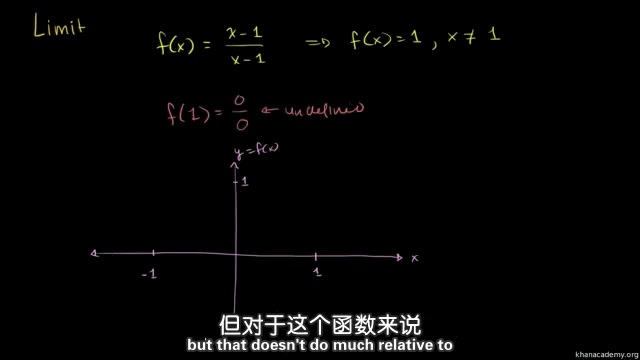 Limit
f(x) = x-1 / x-1 ⇒ f(x) = 1, x ≠ 1
f(1) = 0 / 0 ← undefined
y = f(x)
1
x
-1 1
但对于这个函数来说
but that doesn't do much relative to
khanacademy.org